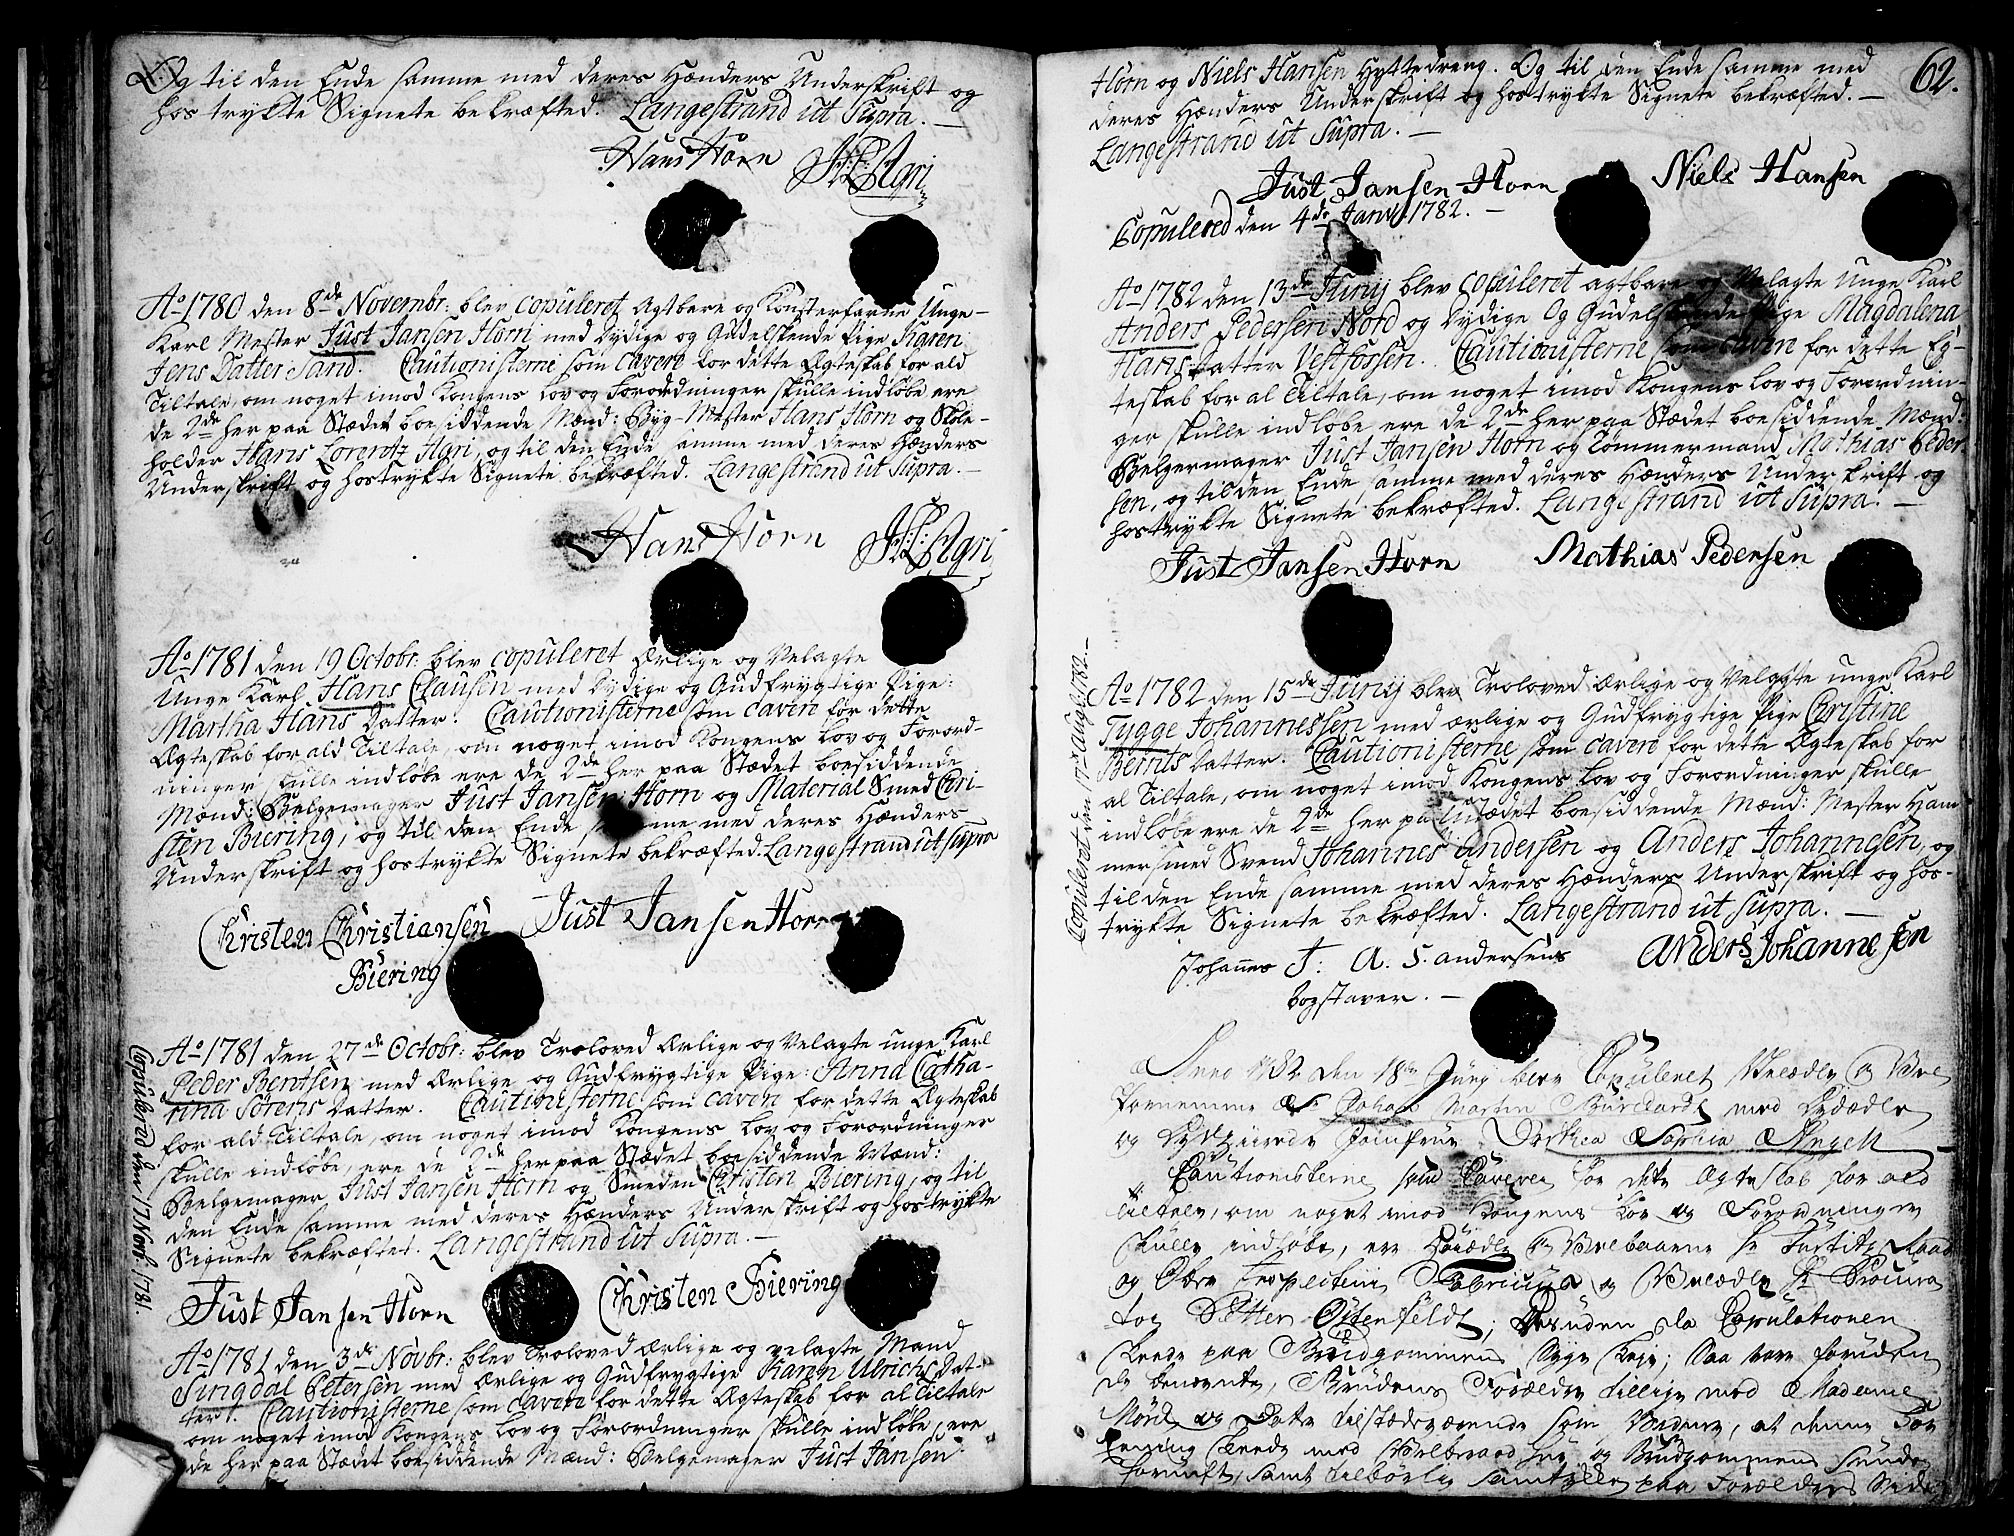 Og til den Ende samme med deres Hænders Underskrift og
hostrykte Signete bekræfted. Langestrand ut Supra. —
Hans Horn H:L:Agri
Ao 1780 den 8de Novembr: blev copuleret Agtbare og Konsterfarne Unge-
Karl Mester Just Jansen Horn med Dydige og Gudelskende Pige Karen
Jens Datter Sand. Cautionisterne som cavere for dette Ægteskab for ald
Tiltale, om noget imod Kongens Lov og Forordninger skulle indløbe ere
de 2de her paa Stædet boesiddende Mænd: Byg-Mester Hans Horn og Skole-
holder Hans Lorentz Agri, og til den Ende samme med deres Hænders
Underskrift og hostrykte Signete bekræfted. Langestrand ut Supra. —
Hans Horn H:L:Agri
Ao 1781 den 19 Octobr: blev copuleret Ærlige og Velagte
Unge Karl Hans Clausen med Dydige og Gudfrygtige Pige:
Martha Hans Datter. Cautionisterne som cavere for dette
Ægteskab for ald Tiltale, om noget imod Kongens Lov og Forord-
ninger skulle indløbe ere de 2de her paa Stædet boesiddende
Mænd: Belgemager Just Jansen Horn og Material Smed Chri-
sten Biering, og til den Ende samme med deres Hænders
Underskrift og hostrykte Signete bekræfted. Langestrand ut Supra
Christen Christiansen Just Jansen Horn
Biering
Ao 1781 den 27de Octobr: blev Troloved Ærlige og Velagte unge Karl
Peder Bentsen med Ærlige og Gudfrygtige Pige: Anna Catha-
rina Sørens Datter. Cautionisterne som cavere for dette Ægteskab
for ald Tiltale, om noget imod Kongens Lov og Forordninger
skulle indløbe, ere de 2de her paa Stædet boesiddende Mænd:
Belgemager Just Jansen Horn og Smeden Christen Biering, og til
den Ende samme med deres Hænders Underskrift og hostrykte
Signete bekræftet. Langestrand ut Supra. —
Copulered den 17 Novb: 1781.
Just Jansen Horn Christen Biering
Ao 1781 den 3de Novbr: blev Troloved Ærlige og velagte Mand
Singdal Petersen med Ærlige og Gudfrygtige Karen Ulrichs Dat-
ter. Cautionisterne som cavere for dette Ægteskab for al Tiltale
om noget imod Kongens Lov og Forordninger skulle indløbe, ere
de her paa Stædet boesiddende Mænd: Belgemager Just Jansen
62.
Horn og Niels Hansen Hyttedreng. Og til den Ende samme med
deres Hænders Underskrift og hostrykte Signete bekræfted. —
Langestrand ut Supra. —
Just Jansen Horn Niels Hansen
Copulered den 4de Janv: 1782. —
Ao 1782 den 13de Junij blev copuleret agtbare og Velagte Unge Karl
Anders Pedersen Nord og Dydige Og Gudelskende Pige Magdalena
Hans Datter Vestfossen. Cautionisterne som cavere for dette Eg-
teskab for al Tiltale, om noget imod Kongens Lov og Forordnin-
ger skulle indløbe ere de 2de her paa Stædet boesiddende Mænd:
Belgermager Just Jansen Horn og Tømmermand Mathias Peder-
sen, og til den Ende samme med deres Hænders Underskrift og
hostrykte Signete bekræfted. Langestrand ut Supra. —
Just Jansen Horn Mathias Pedersen
Ao 1782 den 15de Junij blev Troloved Ærlige og Velagte unge Karl
Tygge Johannessen med ærlige og Gudfrygtige Pige Christine
Berrits Datter. Cautionisterne som cavere for dette Ægteskab for
al Tiltale, om noget imod Kongens Lov og Forordninger skulle
indløbe ere de 2de her paa Stædet boesiddende Mænd: Mester Ham
mersmed Svend Johannes Andersen og Anders Johannesen, og
til den Ende samme med deres Hænders Underskrift og hos-
trykte Signete bekræfted. Langestrand ut Supra. —
Copuleret den 17de Aug: 1782. —
Johannes J: A. S. andersens Anders Johannesen
bogstaver. —
Anno 1782 den 18de Junij blev Copuleret Velædle og Vel
fornemme Sr. Johan Martin Burchardt med Dydædle
og Dydziirede Jomfrue Dorthea Sophia Angell
Cautionisterne som Cavere for dette Ægteskab for ald
Tiltale, om noget imod Kongens Lov og Forordninger
skulle indløbe, ere Velædle og Velbaarne Hr Justitz Raad
og Obre Inspecteur Fabricius og Velædle Hr Procura
tor Petter Ostenfeldt; Desuden da Copulationen
skeede paa Brudgommens Syge Leje; saa vare foruden
de benevnte, Brudens Forældre tillige med Madame
Mørch og tilstædeværende som Vidner, at denne For
ening skeede med Velberaad Hue og Brudgommens sunde
Fornuft, samt tilbørlig samtykke paa Forældres Side